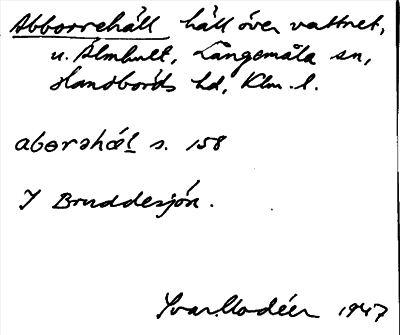 Abborrehäll häll över vattnet,
u. Älmhult, Långemåla sn,
Handbörds hd, Klm. l.
abɵrəhæl s. 158
I Bruddesjön.
Ivar Modéer 1947